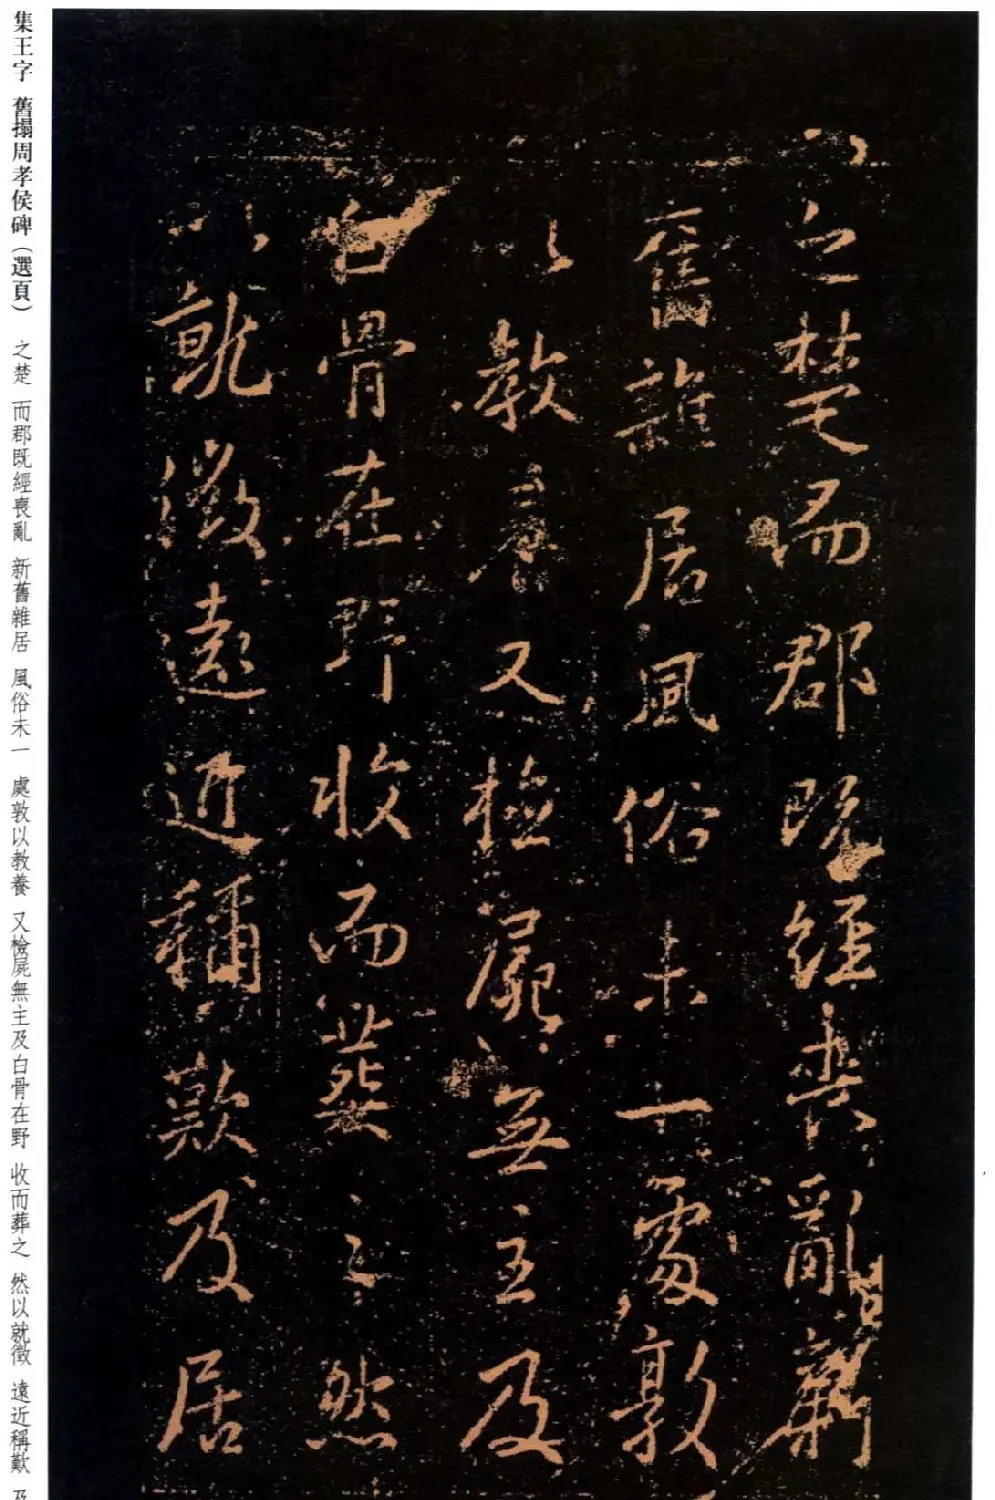 之楚而郡既經喪亂新
舊雜居風俗未一處敦
以教養又檢屍無主及
白骨在野收而葬之然
以就徵遠近稱歎及居
集王字 舊搨周孝侯碑（選頁） 之楚 而郡既經喪亂 新舊雜居 風俗未一 處敦以教養 又檢屍無主及白骨在野 收而葬之 然以就徵 遠近稱歎 及